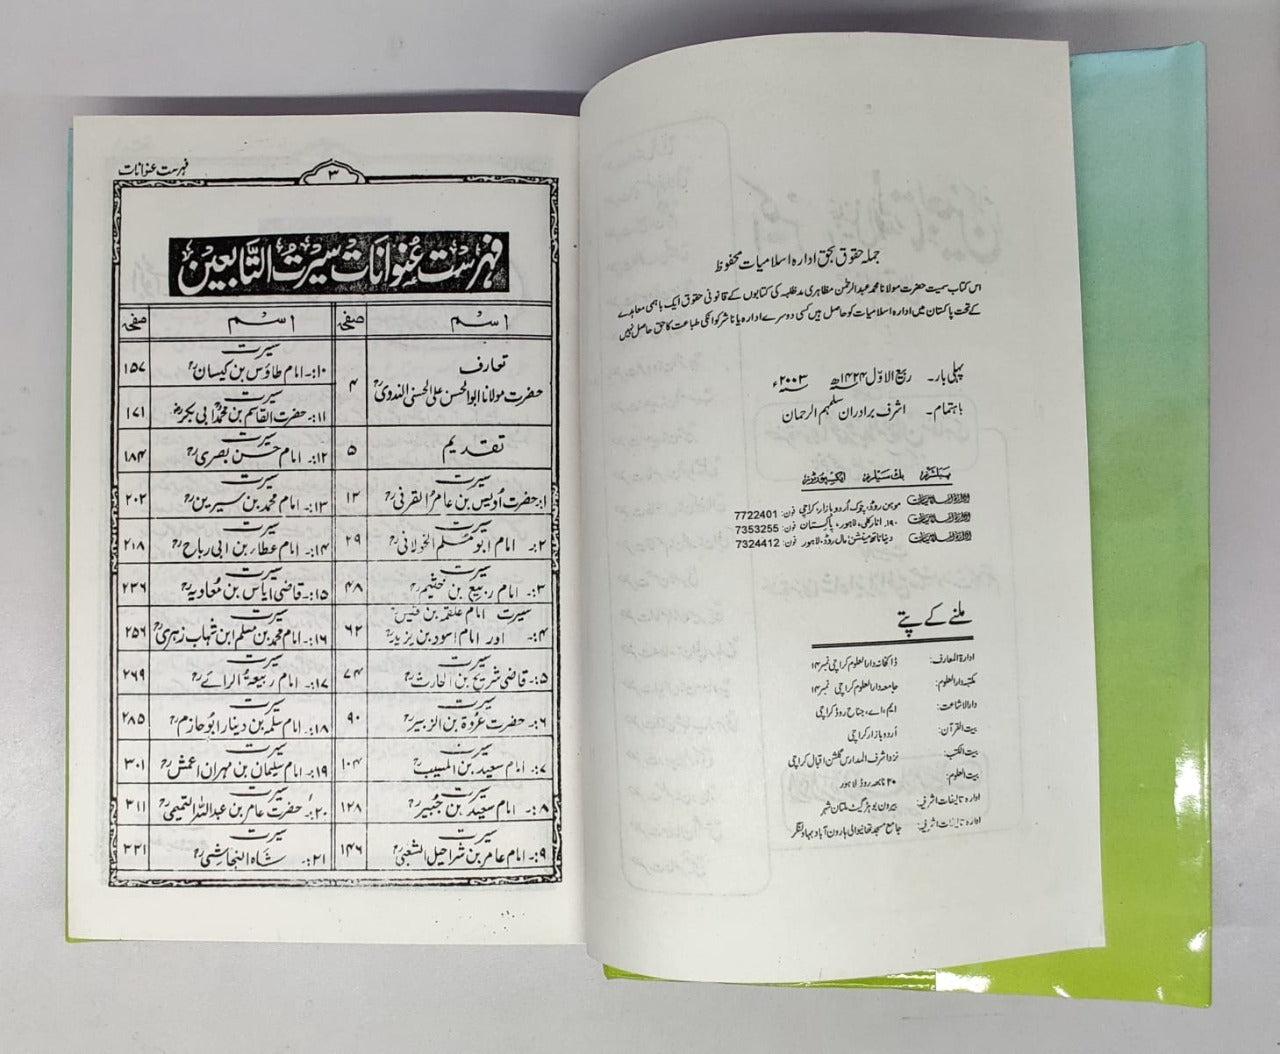 جملہ حقوق بحق ادارہ اسلامیات محفوظ
اس کتاب سمیت حضرت مولانا محمد عبدالرحمٰن مظاہری مدظلہ کی کتابوں کے قانونی حقوق ایک باہمی معاہدے
کے تحت پاکستان میں ادارہ اسلامیات کو حاصل ہیں کسی دوسرے ادارہ یا ناشر کو انکی طباعت کا حق حاصل نہیں
پہلی بار۔ ربیع الاوّل ۱۴۲۴ھ ۲۰۰۳ء
باہتمام۔ اشرف برادران سلمہم الرحمان
پبلشرز بک سیلرز ایکسپورٹرز
ادارہ اسلامیات موہن روڈ، چوک اُردو بازار، کراچی فون: 7722401
ادارہ اسلامیات ۱۹۰۔ انارکلی، لاہور، پاکستان فون: 7353255
ادارہ اسلامیات دیناناتھ مینشن، مال روڈ، لاہور فون: 7324412
ملنے کے پتے
ادارۃ المعارف: ڈاکخانہ دارالعلوم کراچی نمبر ۱۴
مکتبہ دارالعلوم: جامعہ دارالعلوم کراچی نمبر ۱۴
دارالاشاعت: ایم، اے، جناح روڈ کراچی
بیت القرآن: اُردو بازار کراچی
بیت الکتب: نزد اشرف المدارس گلشن اقبال کراچی
بیت العلوم: ۲۰ نابھہ روڈ لاہور
ادارہ تالیفات اشرفیہ: بیرون بوہڑ گیٹ ملتان شہر
ادارہ تالیفات اشرفیہ: جامع مسجد تھانیوالی ہارون آباد بہاولنگر
۳
فہرست عنوانات
فہرست عنوانات سیرت التابعین
اسم صفحہ اسم صفحہ
تعارف
حضرت مولانا ابوالحسن علی الحسنی الندویؒ ۴
سیرت
۱۰:۔ امام طاؤس بن کیسانؒ ۱۵۷
سیرت
۱۱:۔ حضرت القاسم بن محمد ابی بکرؓ ۱۷۱
تقدیم ۵
سیرت
۱۲:۔ امام حسن بصریؒ ۱۸۴
سیرت
۱:۔ حضرت اویس بن عامر القرنیؒ ۱۳
سیرت
۱۳:۔ امام محمد بن سیرینؒ ۲۰۲
سیرت
۲:۔ امام ابو مسلم الخولانیؒ ۲۹
سیرت
۱۴:۔ امام عطار بن ابی رباحؒ ۲۱۸
سیرت
۳:۔ امام ربیع بن خثیمؒ ۴۸
سیرت
۱۵:۔ قاضی ایاس بن معاویہؒ ۲۳۶
سیرت امام علقمہ بن قیس
۴:۔ اور امام اسود بن یزیدؒ ۶۲
سیرت
۱۶:۔ امام محمد بن مسلم ابن شہاب زہریؒ ۲۵۶
سیرت
۵:۔ قاضی شریح بن الحارثؒ ۷۴
سیرت
۱۷:۔ امام ربیعۃ الرائےؒ ۲۶۹
سیرت
۶:۔ حضرت عروۃ بن الزبیرؒ ۹۰
سیرت
۱۸:۔ امام سلمہ بن دینار ابوحازمؒ ۲۸۵
سیرت
۷:۔ امام سعید بن المسیبؒ ۱۰۴
سیرت
۱۹:۔ امام سلیمان بن مہران اعمشؒ ۳۰۱
سیرت
۸:۔ امام سعید بن جبیرؒ ۱۲۸
سیرت
۲۰:۔ حضرت عامر بن عبداللہ التمیمیؒ ۳۱۱
سیرت
۹:۔ امام عامر بن شراحیل الشعبیؒ ۱۴۶
سیرت
۲۱:۔ شاہ النجاشیؒ ۳۳۱